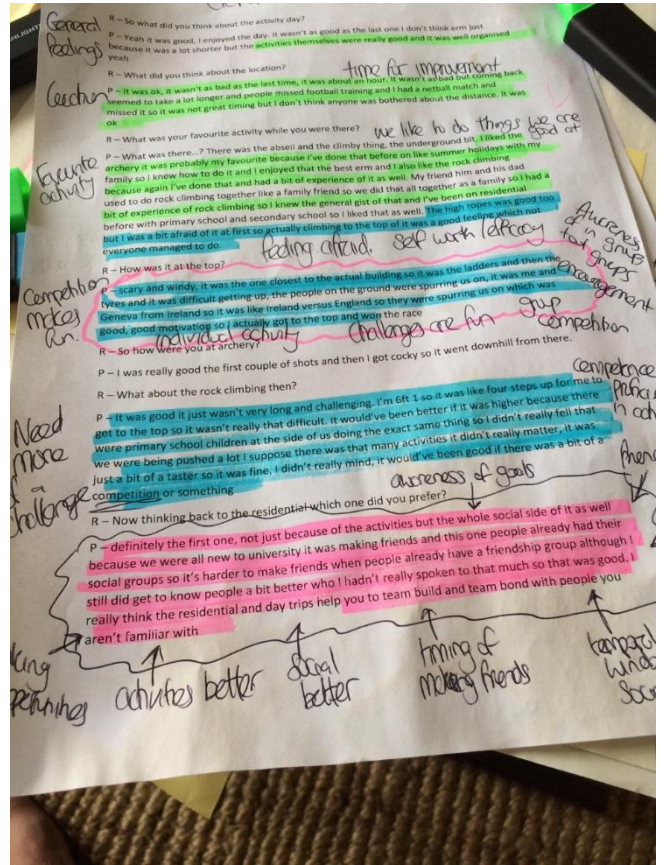 General
feelings
R – So what did you think about the activity day?
P – Yeah it was good, I enjoyed the day. It wasn't as good as the last one I don't think erm just
because it was a lot shorter but the activities themselves were really good and it was well organised
yeah
R – What did you think about the location?
time for improvement
Location
P – It was ok, it wasn't as bad as the last time, it was about an hour. It wasn't as bad but coming back
seemed to take a lot longer and people missed football training and I had a netball match and
missed it so it was not great timing but I don't think anyone was bothered about the distance. It was
ok
R – What was your favourite activity while you were there?
we like to do things we are
good at
Favourite
activity
P – What was there...? There was the abseil and the climby thing, the underground bit. I liked the
archery it was probably my favourite because I've done that before on like summer holidays with my
family so I knew how to do it and I enjoyed that the best erm and I also like the rock climbing
because again I've done that and had a bit of experience of it as well. My friend him and his dad
used to do rock climbing together like a family friend so we did that all together as a family so I had a
bit of experience of rock climbing so I knew the general gist of that and I've been on residential
before with primary school and secondary school so I liked that as well. The high ropes was good too
but I was a bit afraid of it at first so actually climbing to the top of it was a good feeling which not
everyone managed to do.
feeling afraid. self worth/efficacy
Awareness
of in groups
that groups
R – How was it at the top?
encouragement
Competition
makes
fun.
P – scary and windy, it was the one closest to the actual building so it was the ladders and then the
tyres and it was difficult getting up, the people on the ground were spurring us on, it was me and
Geneva from Ireland so it was like Ireland versus England so they were spurring us on which was
good, good motivation so I actually got to the top and won the race
individual activity challenges are fun group
competition
R – So how were you at archery?
P – I was really good the first couple of shots and then I got cocky so it went downhill from there.
R – What about the rock climbing then?
competence
in
Need
more
of a
challenge
P – It was good it just wasn't very long and challenging. I'm 6ft 1 so it was like four steps up for me to
get to the top so it wasn't really that difficult. It would've been better if it was higher because there
were primary school children at the side of us doing the exact same thing so I didn't really fell that
we were being pushed a lot I suppose there was that many activities it didn't really matter, it was
just a bit of a taster so it was fine, I didn't really mind, it would've been good if there was a bit of a
competition or something
awareness of goals
R – Now thinking back to the residential which one did you prefer?
P – definitely the first one, not just because of the activities but the whole social side of it as well
because we were all new to university it was making friends and this one people already had their
social groups so it's harder to make friends when people already have a friendship group although I
still did get to know people a bit better who I hadn't really spoken to that much so that was good. I
really think the residential and day trips help you to team build and team bond with people you
aren't familiar with
activities better
social
better
timing of
making friends